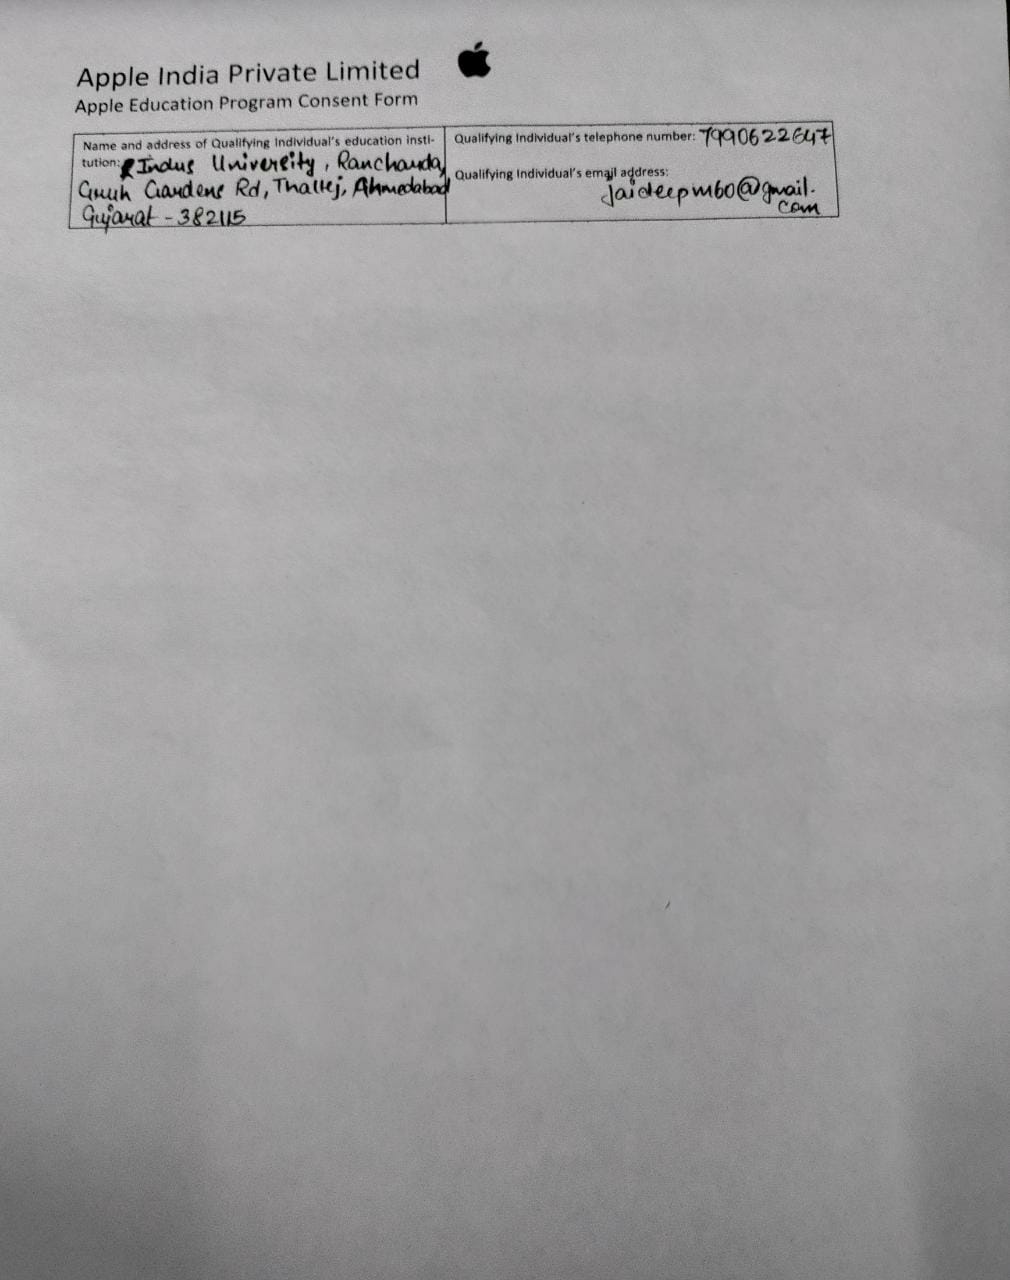 Apple India Private Limited
Apple Education Program Consent Form
Name and address of Qualifying Individual's education insti-
tution: Indus University, Rancharda,
Gardens Rd, Thaltej, Ahmedabad
Gujarat - 382115
Qualifying Individual's telephone number: 7990622647
Qualifying Individual's email address:
jaideepm60@gmail.
com